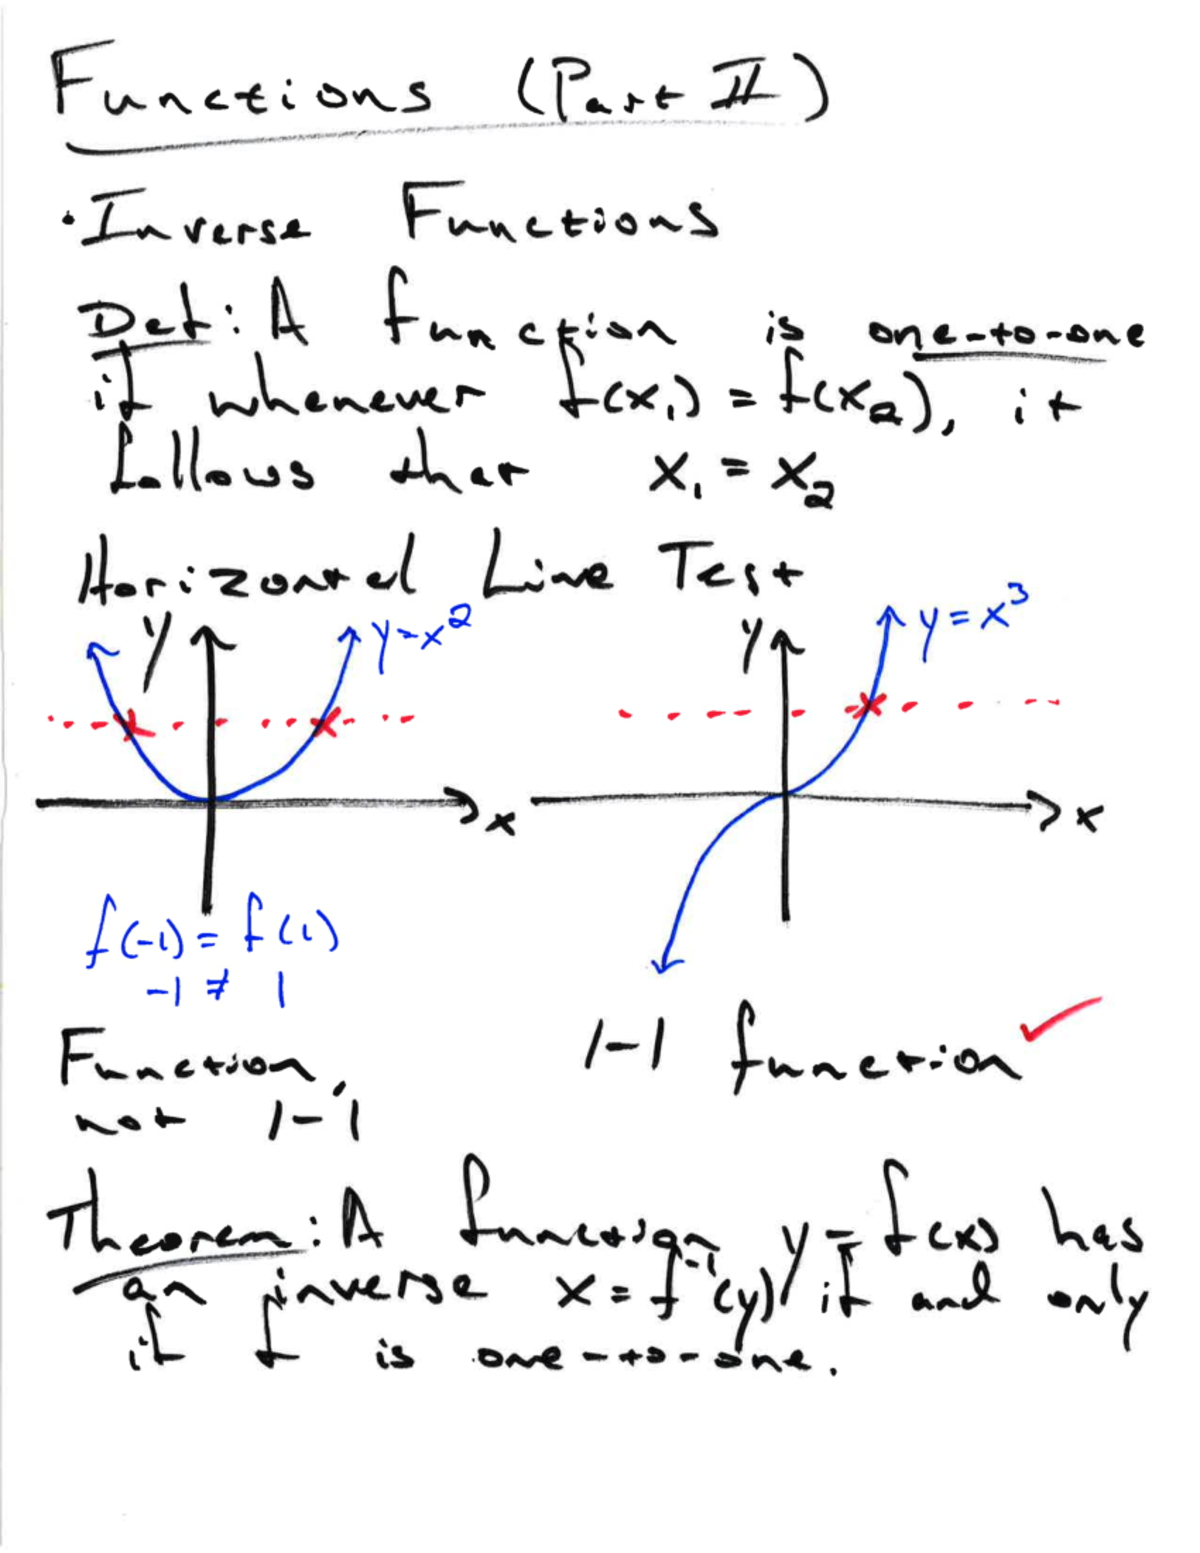 Functions (Part II)
• Inverse Functions
Def: A function is one-to-one
if whenever f(x₁) = f(x₂), it
follows that x₁ = x₂
Horizontal Line Test
y y=x² y y=x³
x x
f(-1) = f(1)
-1 ≠ 1
Function, 1-1 function ✓
not 1-1
Theorem: A function y = f(x) has
an inverse x = f⁻¹(y) if and only
if f is one-to-one.